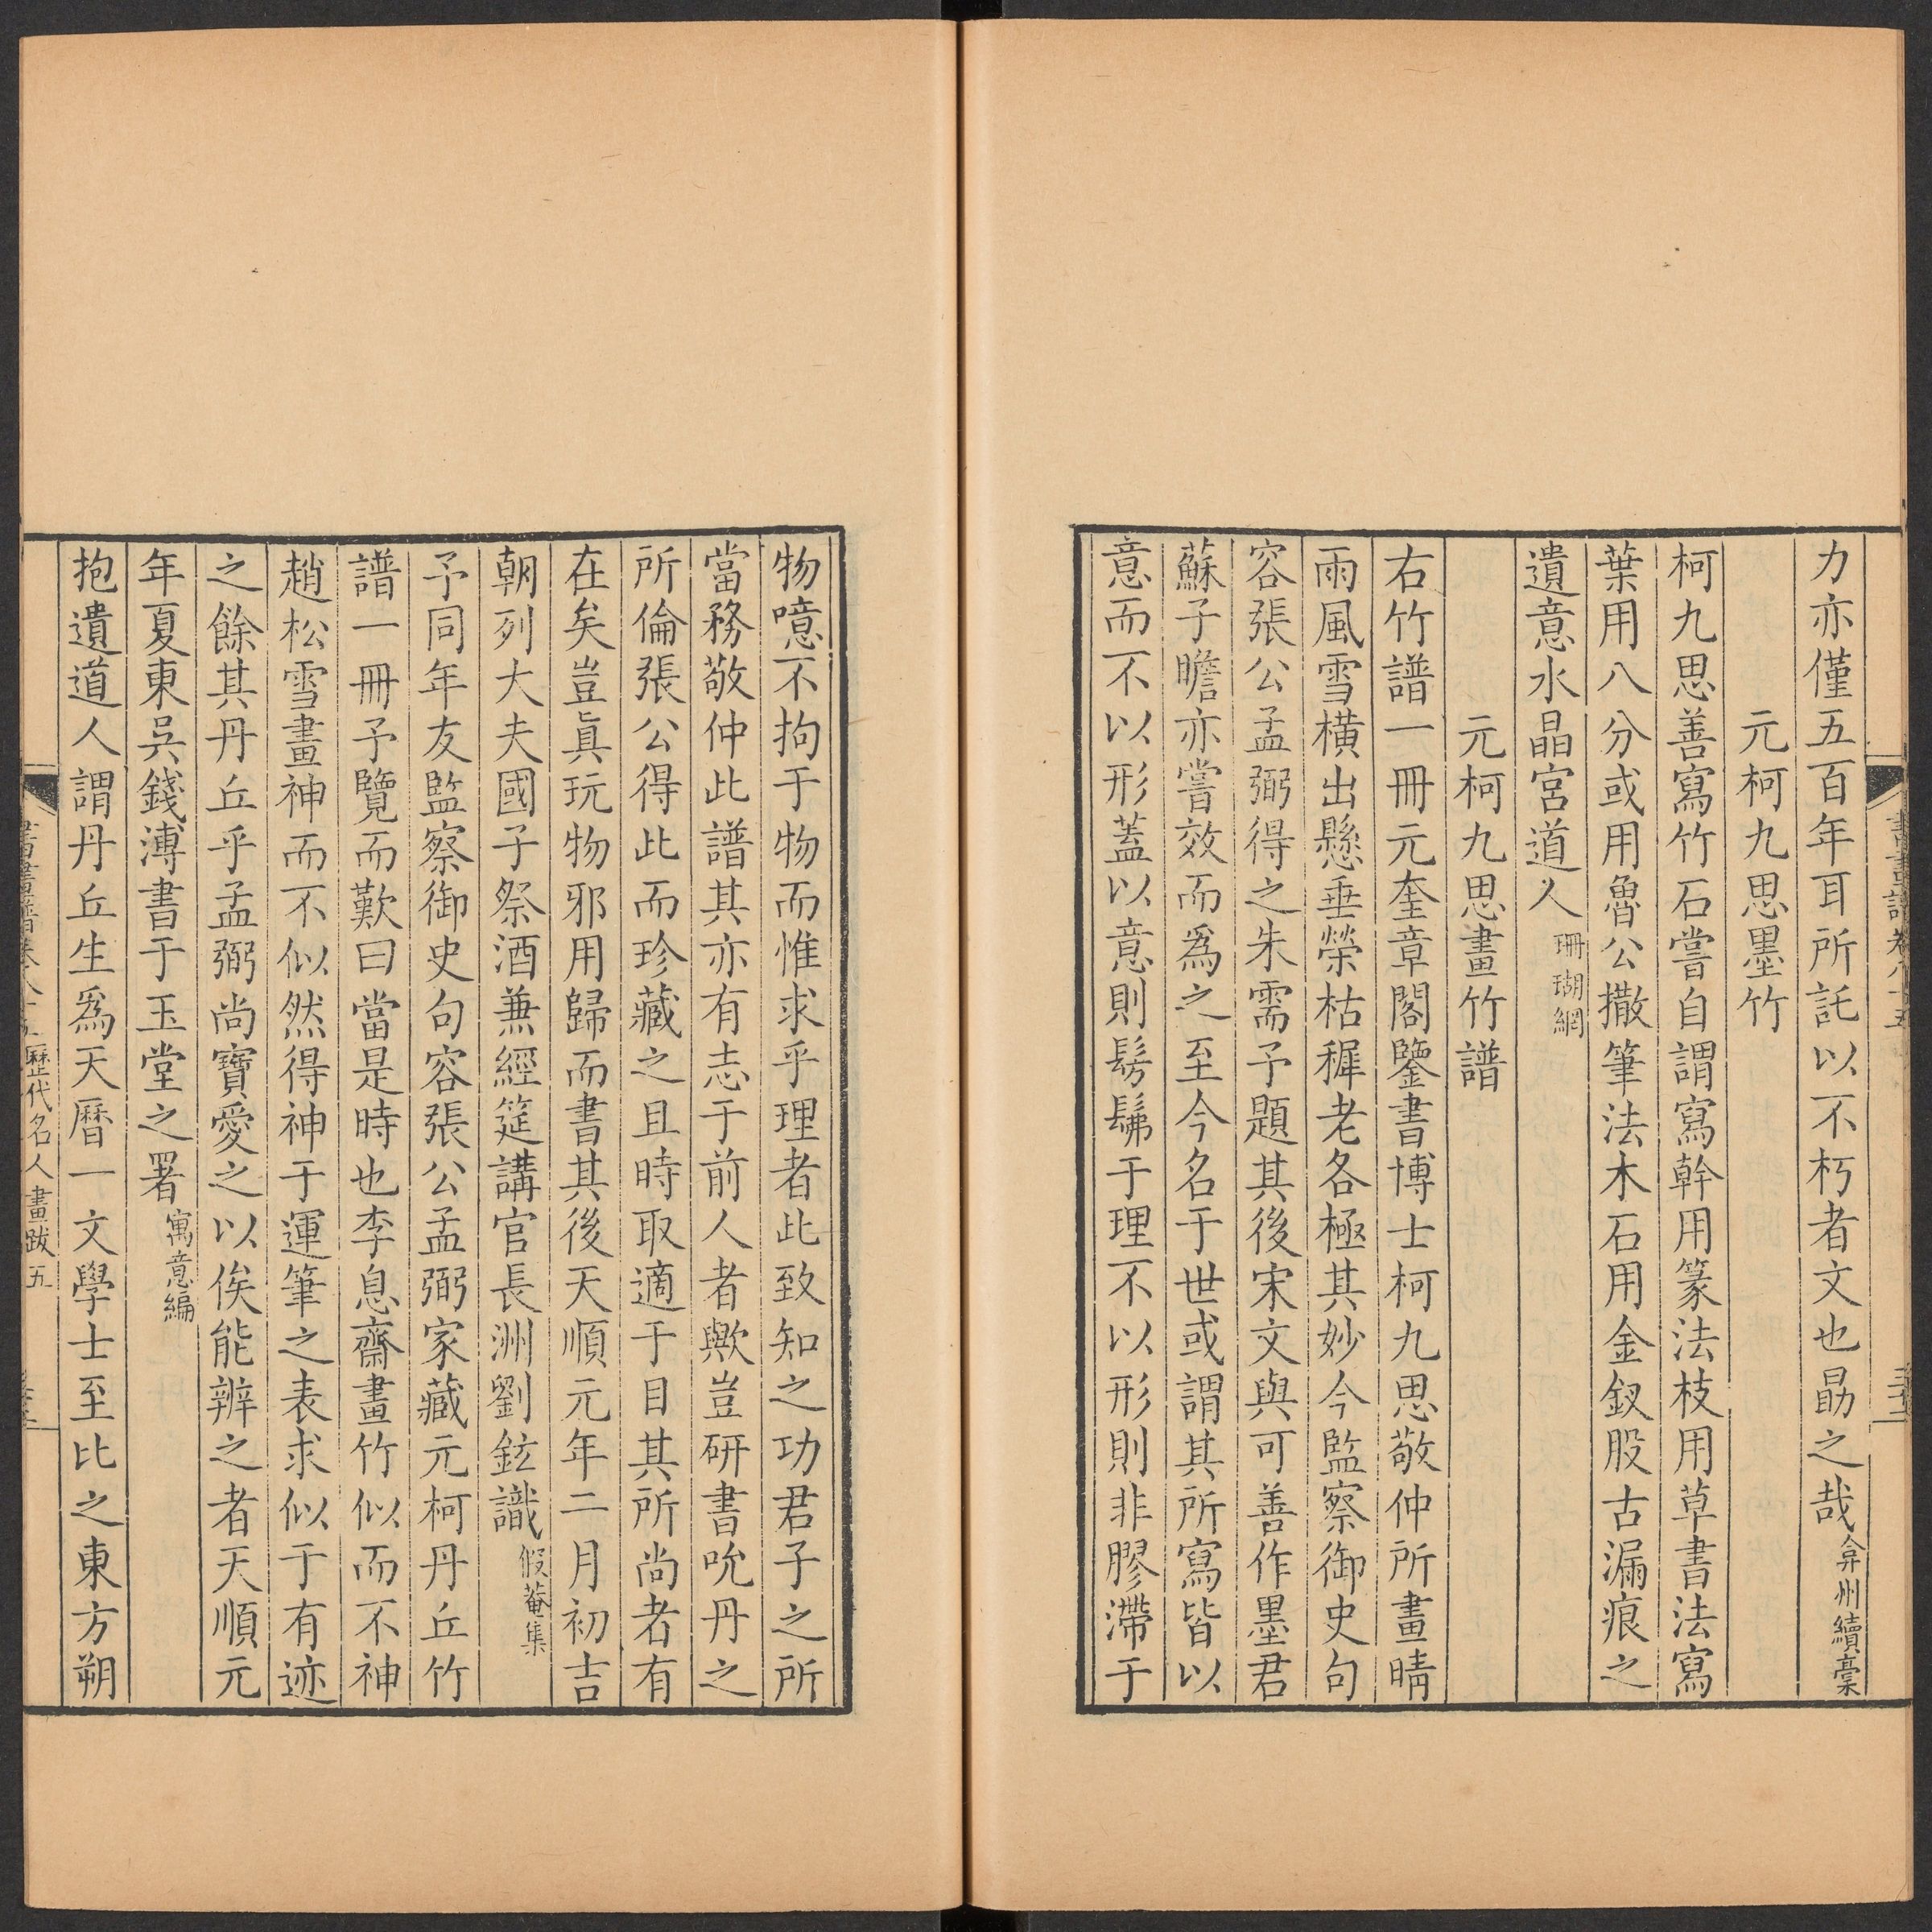 力亦僅五百年耳所託以不朽者文也勗之哉弇州續藁
元柯九思墨竹
柯九思善寫竹石嘗自謂寫幹用篆法枝用草書法寫
葉用八分或用魯公撇筆法木石用金釵股古漏痕之
遺意水晶宮道人珊瑚網
元柯九思畫竹譜
右竹譜一冊元奎章閣鑒書博士柯九思敬仲所畫晴
雨風雪橫出懸垂榮枯穉老各極其妙今監察御史句
容張公孟弼得之朱需予題其後宋文與可善作墨君
蘇子瞻亦嘗效而爲之至今名于世或謂其所寫皆以
意而不以形蓋以意則髣髴于理不以形則非膠滯于
物噫不拘于物而惟求乎理者此致知之功君子之所
當務敬仲此譜其亦有志于前人者歟豈研書吮丹之
所倫張公得此而珍藏之且時取適于目其所尚者有
在矣豈眞玩物邪用歸而書其後天順元年二月初吉
朝列大夫國子祭酒兼經筵講官長洲劉鉉識假菴集
予同年友監察御史句容張公孟弼家藏元柯丹丘竹
譜一冊予覽而歎曰當是時也李息齋畫竹似而不神
趙松雪畫神而不似然得神于運筆之表求似于有迹
之餘其丹丘乎孟弼尚寶愛之以俟能辨之者天順元
年夏東吳錢溥書于玉堂之署寓意編
抱遺道人謂丹丘生爲天曆一文學士至比之東方朔
書畫譜卷八十五 歷代名人畫跋五